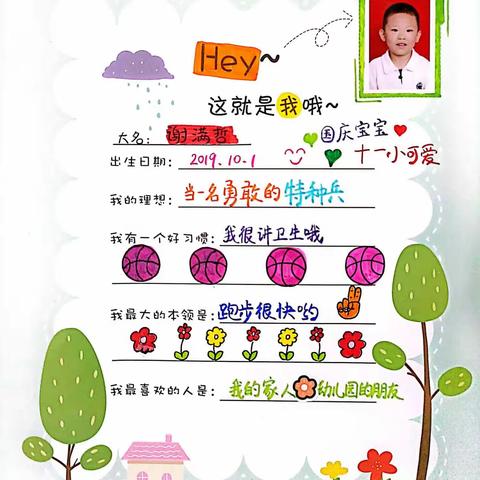 Hey~
这就是我哦~
大名：谢满哲
国庆宝宝
出生日期：2019.10.1
十一小可爱
我的理想：当一名勇敢的特种兵
我有一个好习惯：我很讲卫生哦
我最大的本领是：跑步很快哟
我最喜欢的人是：我的家人 幼儿园的朋友